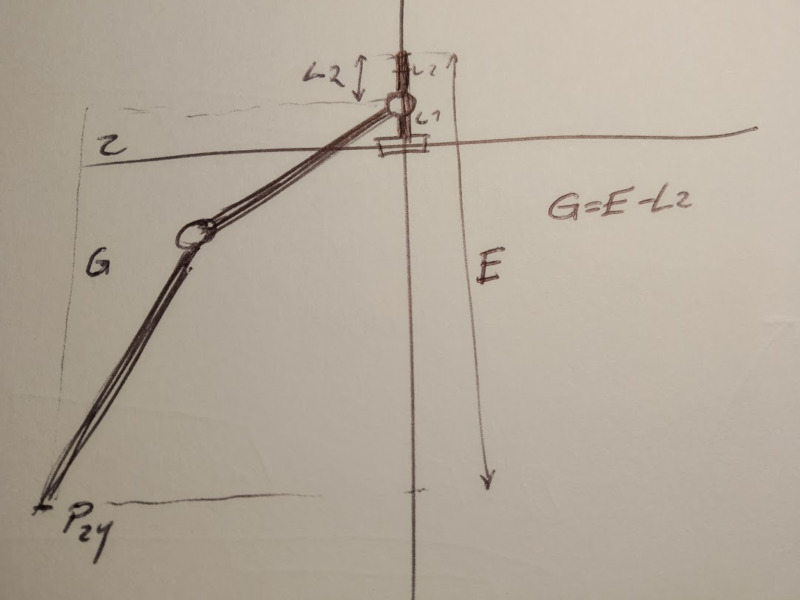 L2
L2
L1
Z
G=E-L2
G
E
Pzy